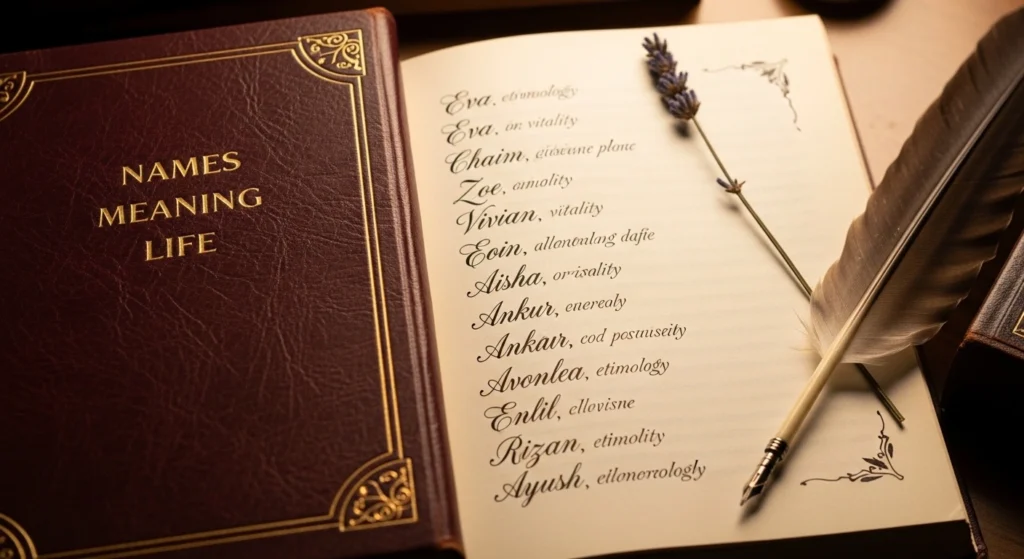 NAMES
MEANING
LIFE
Eva. etimuology
Eva. on vitality
Chaim, plane
Zoe,
Vivian, vitality
Eoin, allontulang dafie
Aisha, or‑isality
Ankur, enerealy
Ankaur, cod postnuseity
Avonlea, etimology
Enlil, ellovisne
Rizan, etimolity
Ayush,